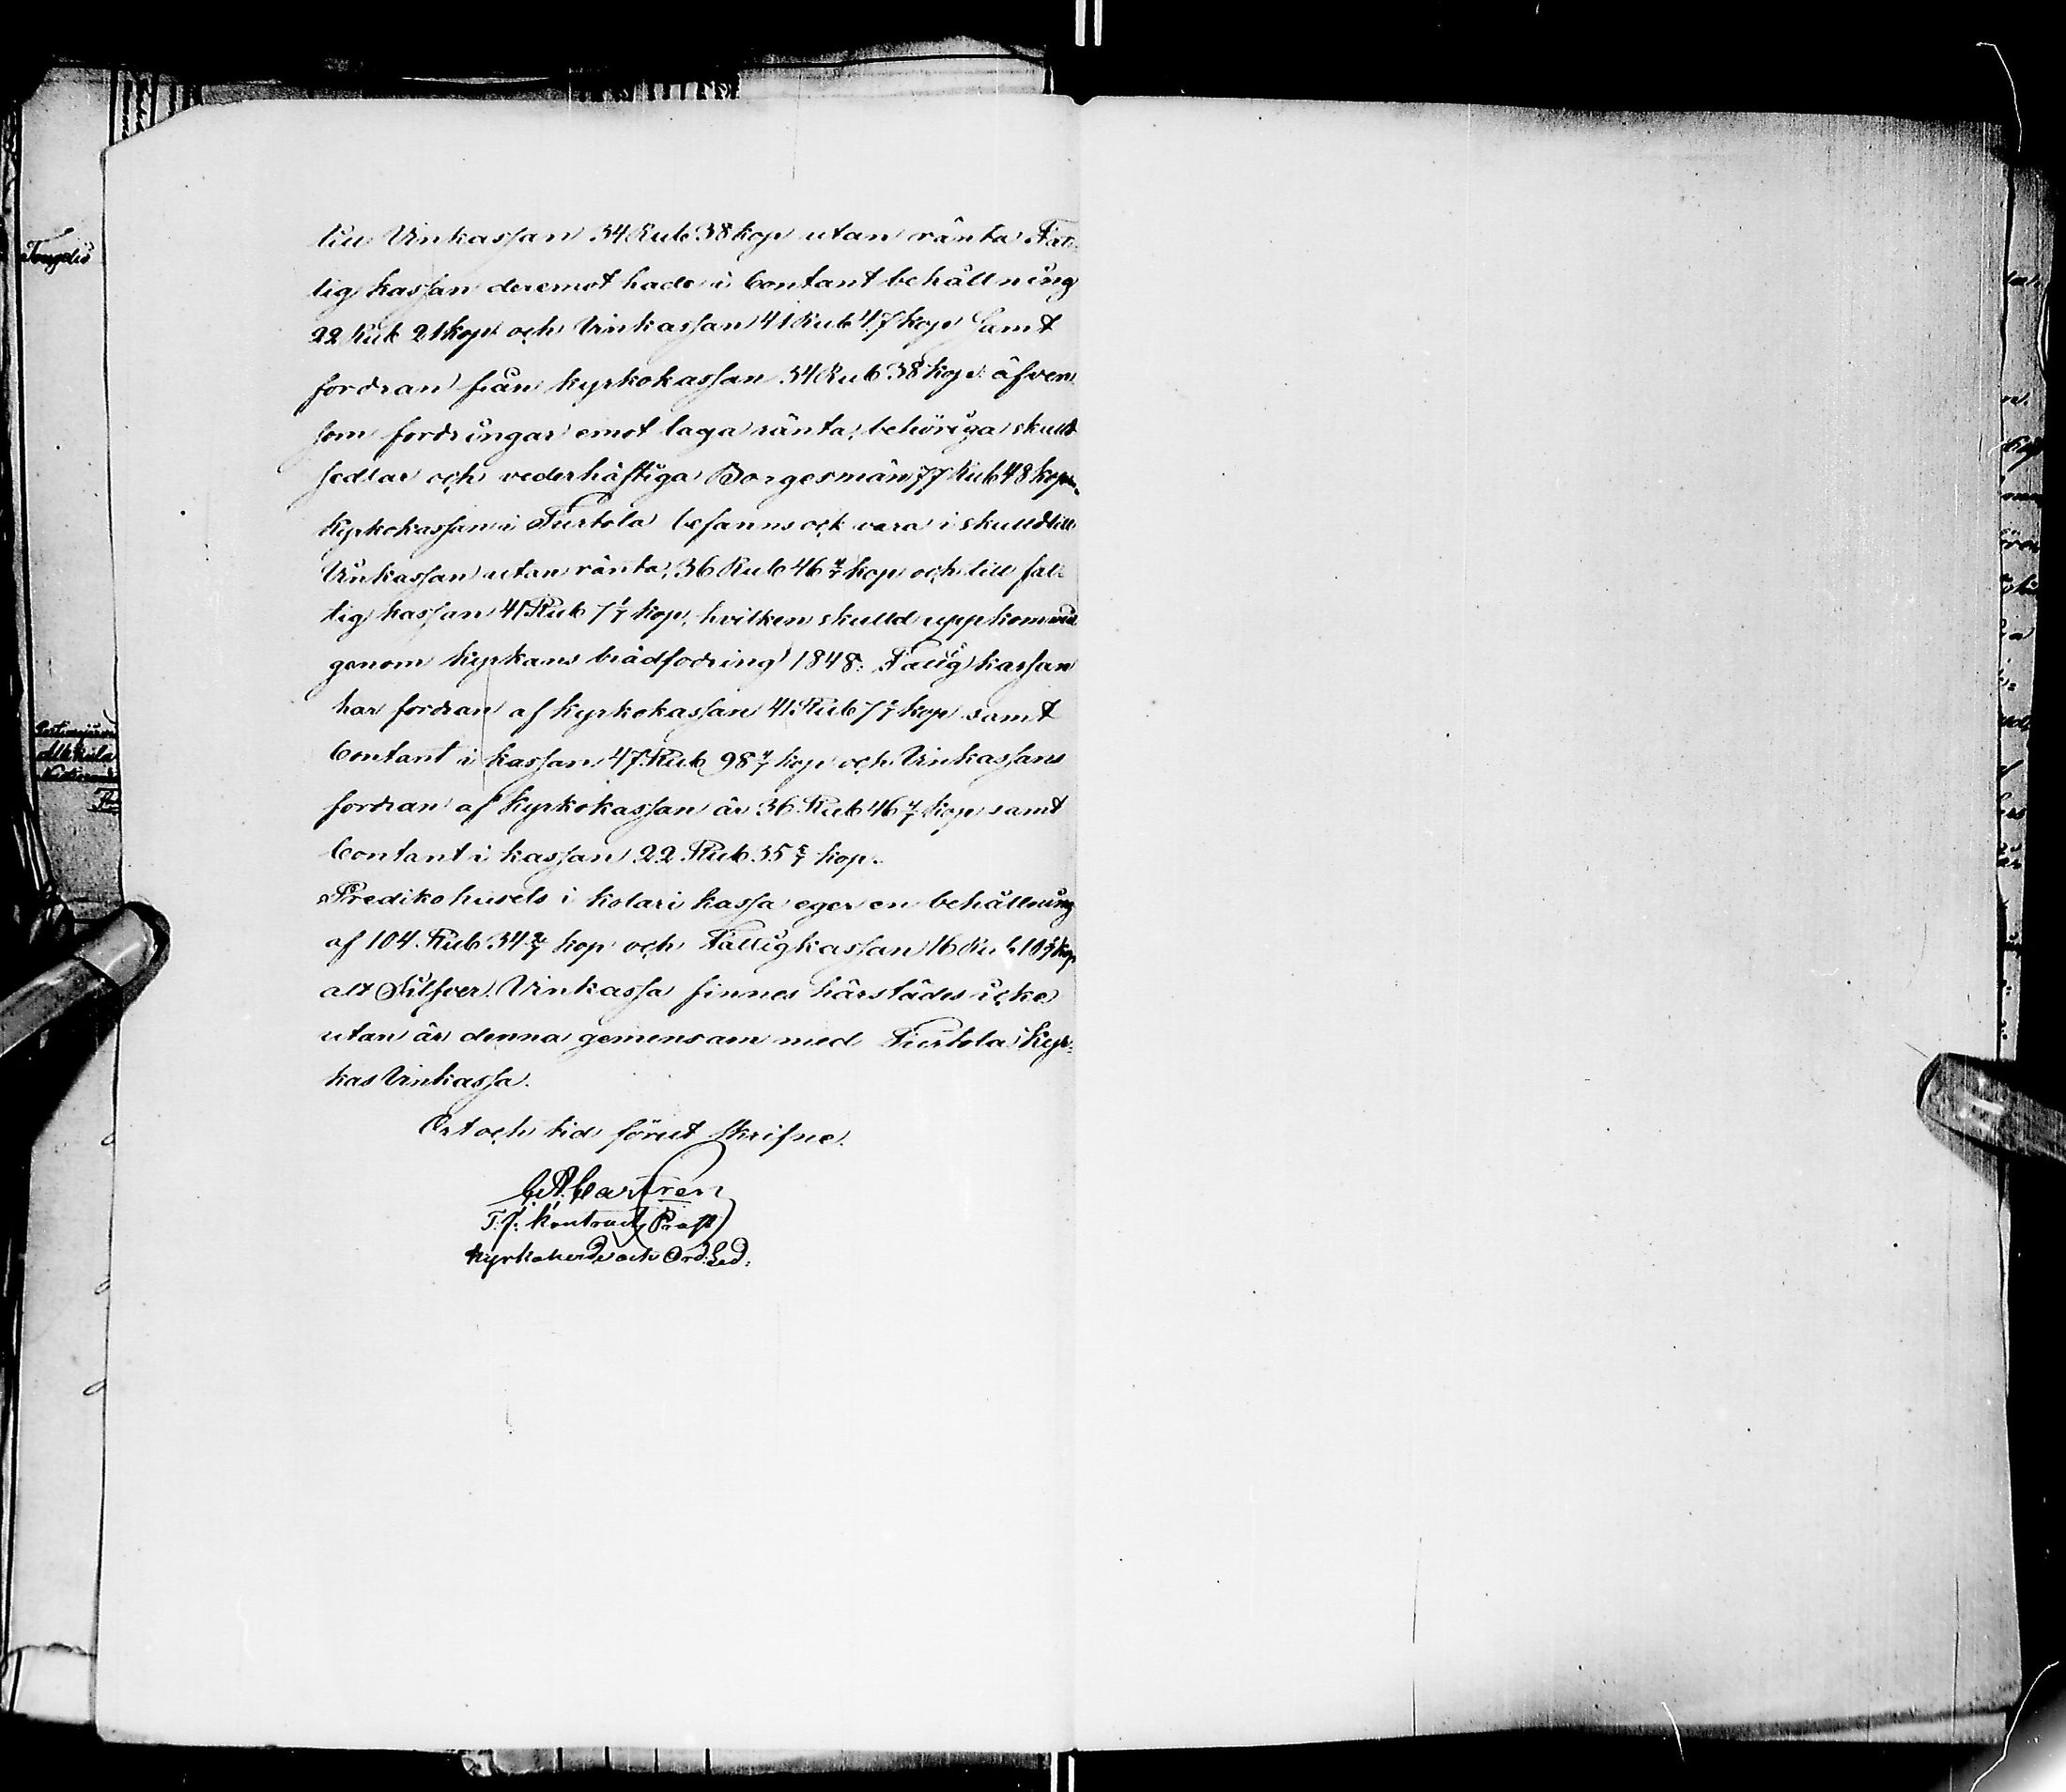 till Vinkassan 34 Rub 38 kop utan ränta Fat-
tig kassan deremot hade i Contant behållning
22 Rub 21 kop och Vinkassan 41 Rub 47 kop Samt
fordran från kyrkokassan 34 Rub 38 kop: äfven
som fordringar emot laga ränta, behöriga skuld
sedlar och vederhäftiga Borgesmän 77 Rub 48 kop.
Kyrkokassan i Turtola befanns ock vara i skulld till
Vinkassan utan ränta, 36 Rub 46 4/7 kop och till fat-
tig kassan 41 Rub 7 1/7 kop, hvilken skulld uppkommit
genom kyrkans brädfodring 1848. Fattig kassan
har fordran af kyrkokassan 41 Rub 7 1/7 kop samt
Contant i kassan 47 Rub 98 4/7 kop och Vinkassans
fordran af kyrkokassan är 36 Rub 46 4/7 kop samt
Contant i kassan 22 Rub 35 5/7 kop.
Predikohusets i Kolari kassa eger en behållning
af 104 Rub 34 2/7 kop och Fattigkassan 16 Rub 10 kop
alt Silfver. Vinkassa finnes härstädes icke
utan är denna gemensam med Turtola Kyr-
kas Vinkassa.
Ort och tid förut skrifne.
C. A. Castren
T. f. Kontracts Prost
Kyrkoherde och Ord. Led:
Tengeliö